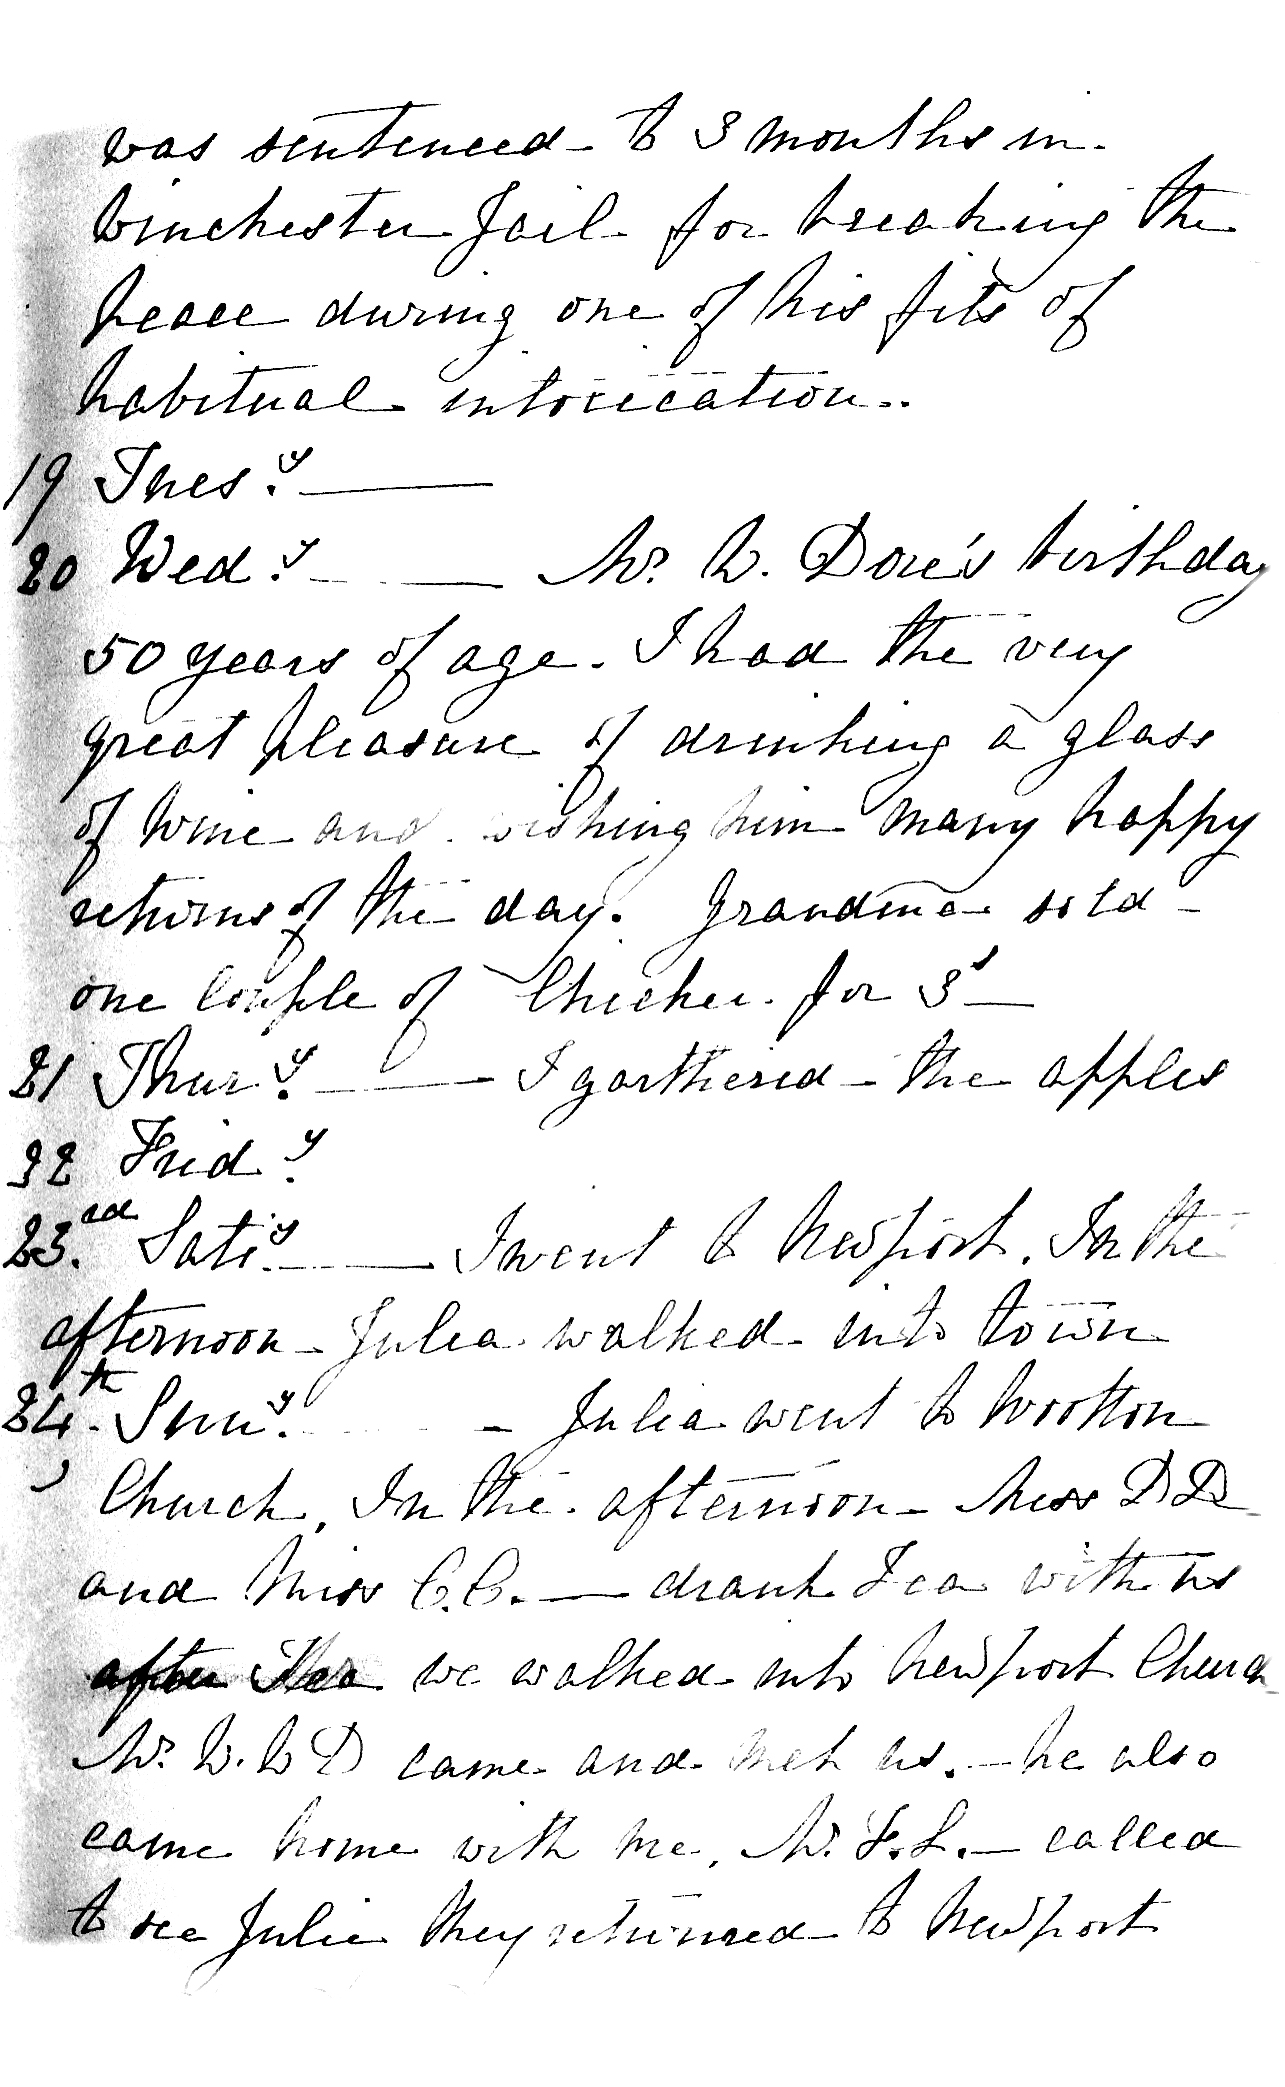 was sentenced - to 3 months in
Winchester Jail for breaking the
peace during one of his fits of
habitual intoxication..
19 Tues.y ———
20 Wed.y ——— Mr. W. Dore's birthday
50 years of age. I had the very
great pleasure of drinking a glass
of wine and wishing him many happy
returns of the day. Grandma sold -
one Couple of Chicken for 3s —
21 Thur.y ——— I garthered - the apples
22 Frid.y
23.rd Sat.y ——— I went to Newport. In the
afternoon - Julia walked into town
24.th Sun.y - Julia went to Wootton
Church, In the afternoon - Miss D D
and Miss C.C. — drank Tea with us
after Tea we walked into Newport Church
Mr. W. W D came and met us. — he also
came home with me, Mr. F. L. — called
to see Julia they returned to Newport